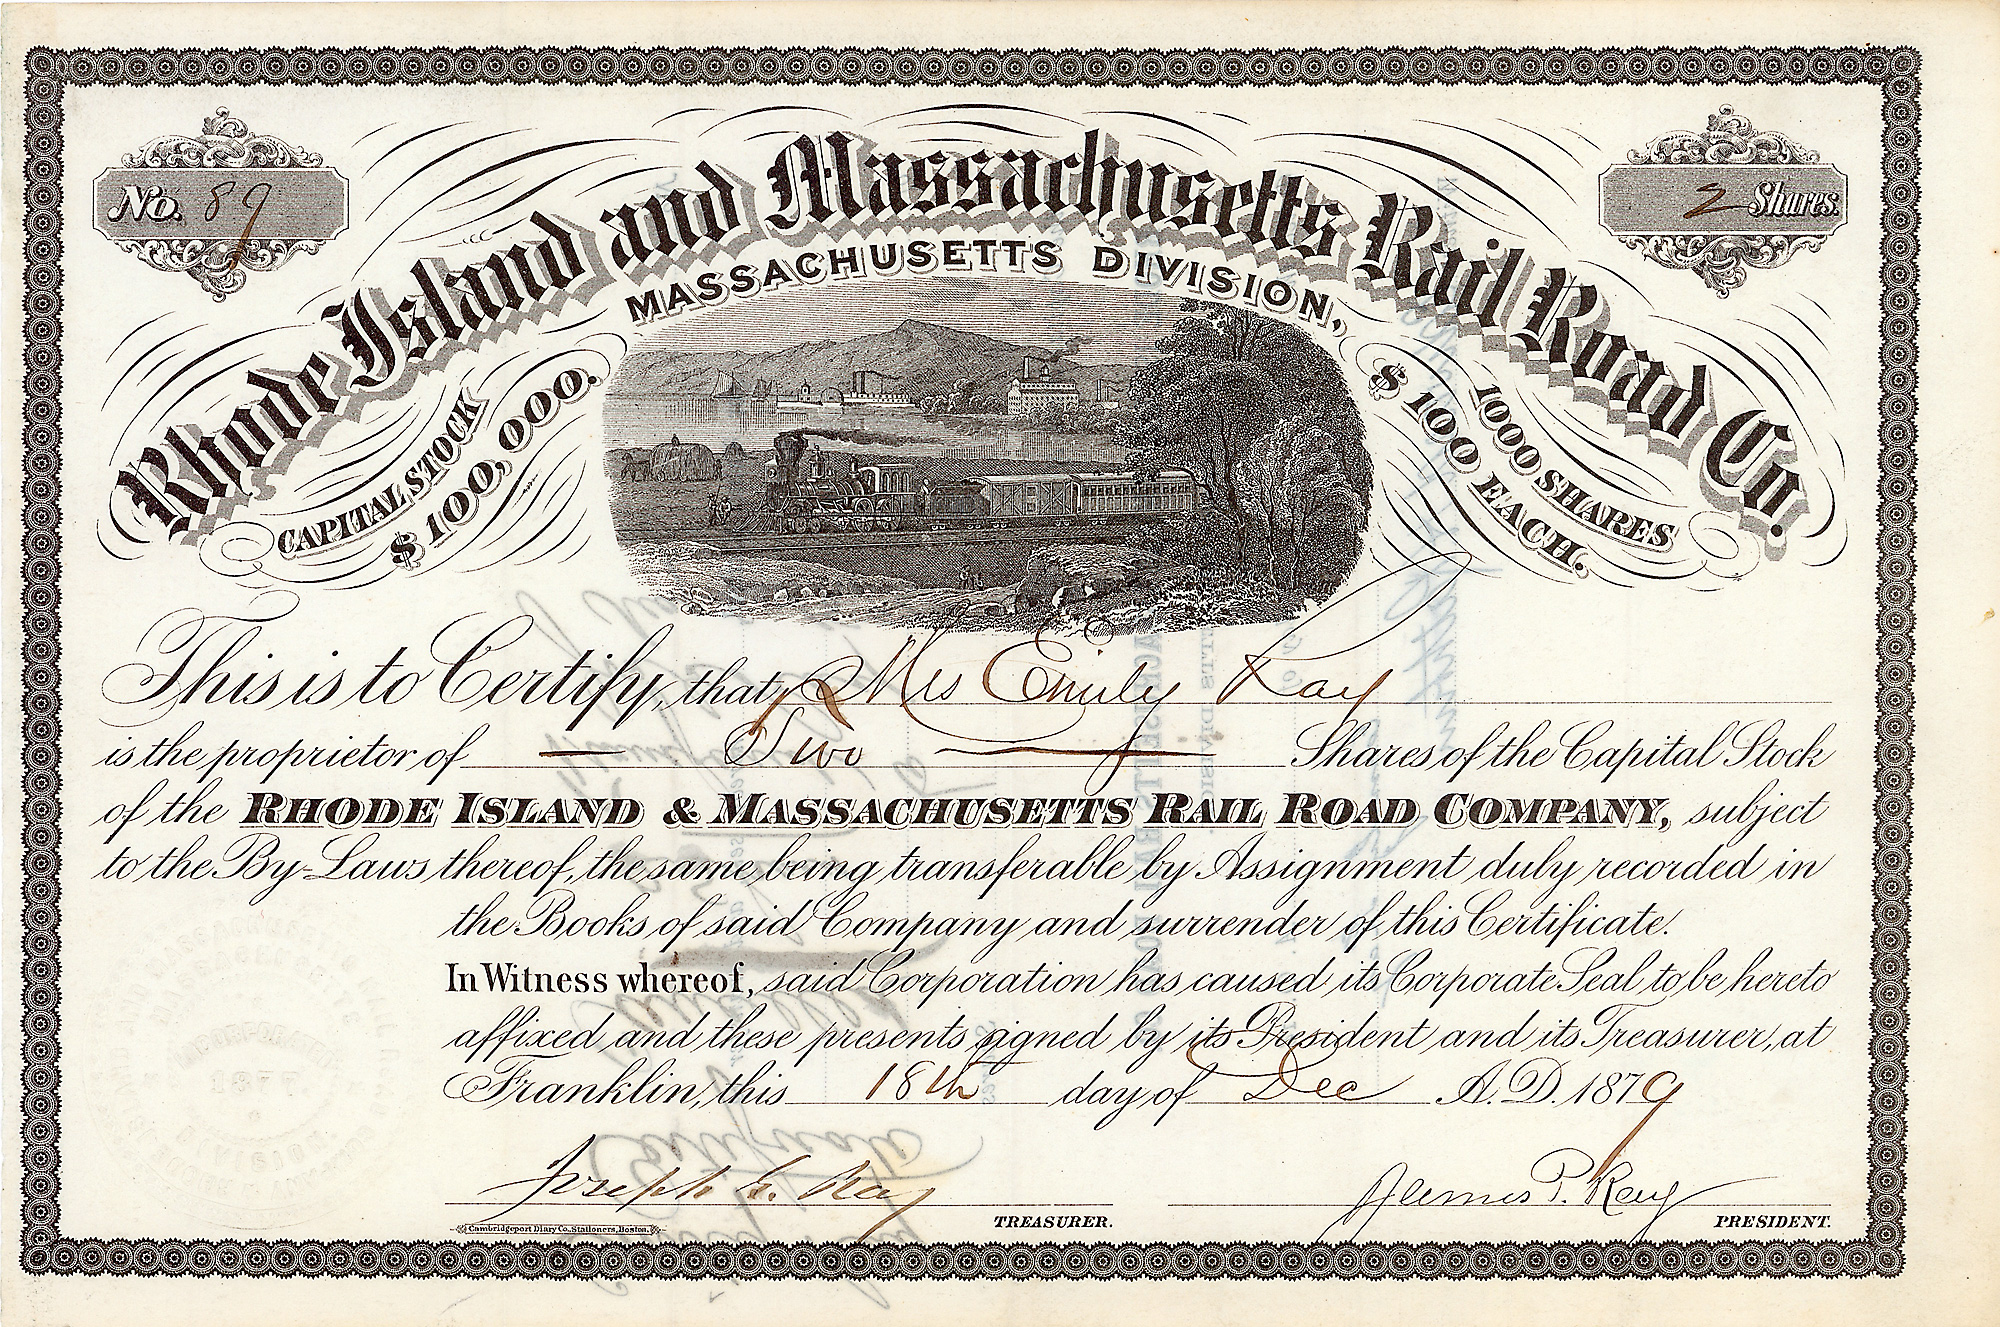 No. 89
2 Shares.
Rhode Island and Massachusetts Rail Road Co.
MASSACHUSETTS DIVISION,
CAPITAL STOCK
$100,000.
1000 SHARES
$100 EACH.
This is to Certify, that Mrs Emily Ray
is the proprietor of Two Shares of the Capital Stock
of the RHODE ISLAND & MASSACHUSETTS RAIL ROAD COMPANY, subject
to the By-Laws thereof, the same being transferable by Assignment duly recorded in
the Books of said Company and surrender of this Certificate.
In Witness whereof, said Corporation has caused its Corporate Seal to be hereto
affixed and these presents signed by its President and its Treasurer, at
Franklin, this 18th day of Dec A.D. 1879
Joseph G. Ray
James P. Ray
Cambridgeport Diary Co., Stationers, Boston.
TREASURER.
PRESIDENT.